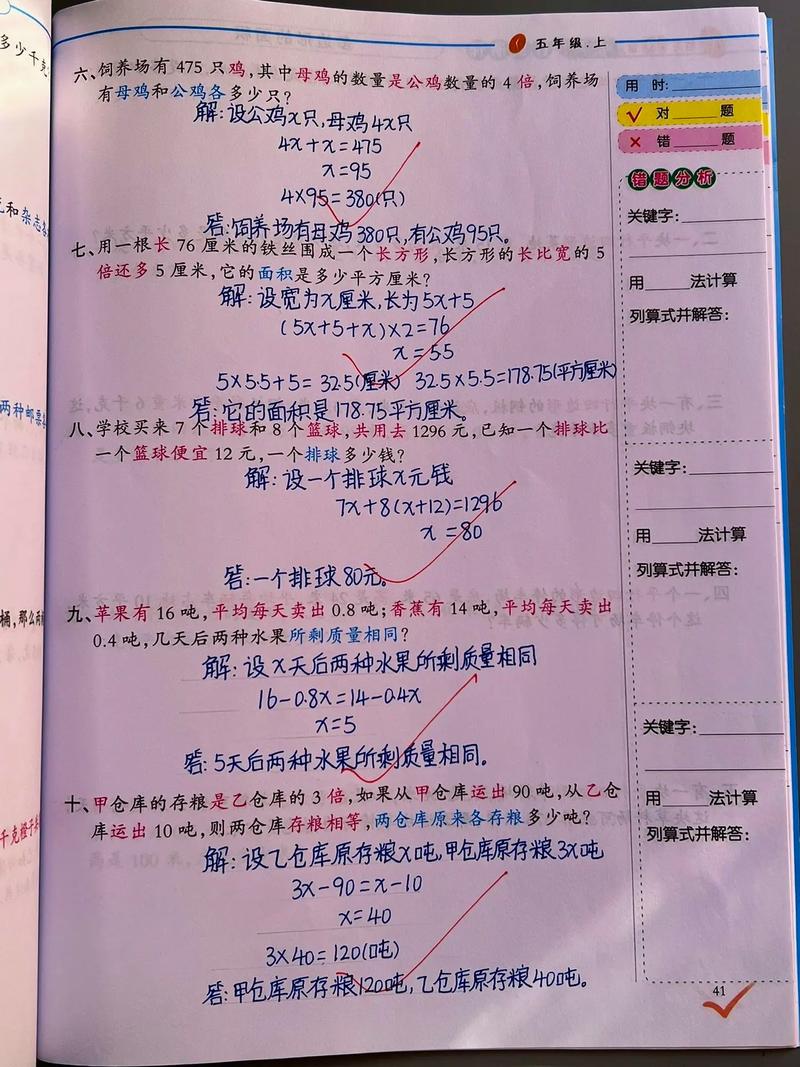 多少千克
五年级.上
六、饲养场有 475 只鸡,其中母鸡的数量是公鸡数量的 4 倍,饲养场
有母鸡和公鸡各多少只?
解:设公鸡x只,母鸡4x只
4x+x=475
x=95
4×95=380(只)
答:饲养场有母鸡380只,有公鸡95只。
七、用一根长 76 厘米的铁丝围成一个长方形,长方形的长比宽的 5
倍还多 5 厘米,它的面积是多少平方厘米?
解:设宽为x厘米,长为5x+5
(5x+5+x)×2=76
x=5.5
5×5.5+5=32.5(厘米) 32.5×5.5=178.75(平方厘米)
答:它的面积是178.75平方厘米。
八、学校买来 7 个排球和 8 个篮球,共用去 1296 元,已知一个排球比
一个篮球便宜 12 元,一个排球多少钱?
解:设一个排球x元钱
7x+8(x+12)=1296
x=80
答:一个排球80元。
九、苹果有 16 吨,平均每天卖出 0.8 吨;香蕉有 14 吨,平均每天卖出
0.4 吨,几天后两种水果所剩质量相同?
解:设x天后两种水果所剩质量相同
16-0.8x=14-0.4x
x=5
答:5天后两种水果所剩质量相同。
十、甲仓库的存粮是乙仓库的 3 倍,如果从甲仓库运出 90 吨,从乙仓
库运出 10 吨,则两仓库存粮相等,两仓库原来各存粮多少吨?
解:设乙仓库原存粮x吨,甲仓库原存粮3x吨
3x-90=x-10
x=40
3×40=120(吨)
答:甲仓库原存粮120吨,乙仓库原存粮40吨。
用 时:
✓ 对 题
× 错 题
错题分析
关键字:
用 法计算
列算式并解答:
关键字:
用 法计算
列算式并解答:
关键字:
用 法计算
列算式并解答:
41
和杂志各
两种邮票
桶,那么两
千克橙子